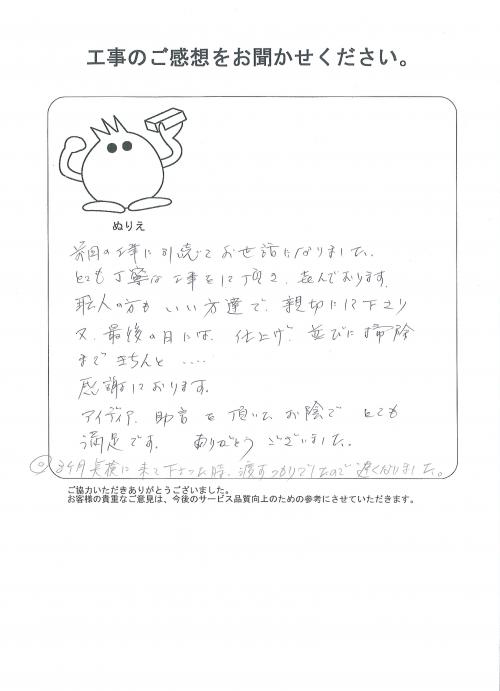 工事のご感想をお聞かせください。
ぬりえ
前回の工事に引続きお世話になりました。
とても丁寧な工事をして頂き、喜んでおります。
職人の方も いい方達で、親切にして下さり
又、最後の日には、仕上げ、並びに掃除
まで きちんと ‥‥
感謝しております。
アイディア、助言を頂いて、お陰で とても
満足です。 ありがとう ございました。
◎3ヶ月点検に来て下さった時、渡すつもりでしたので遅くなりました。
ご協力いただきありがとうございました。
お客様の貴重なご意見は、今後のサービス品質向上のための参考にさせていただきます。